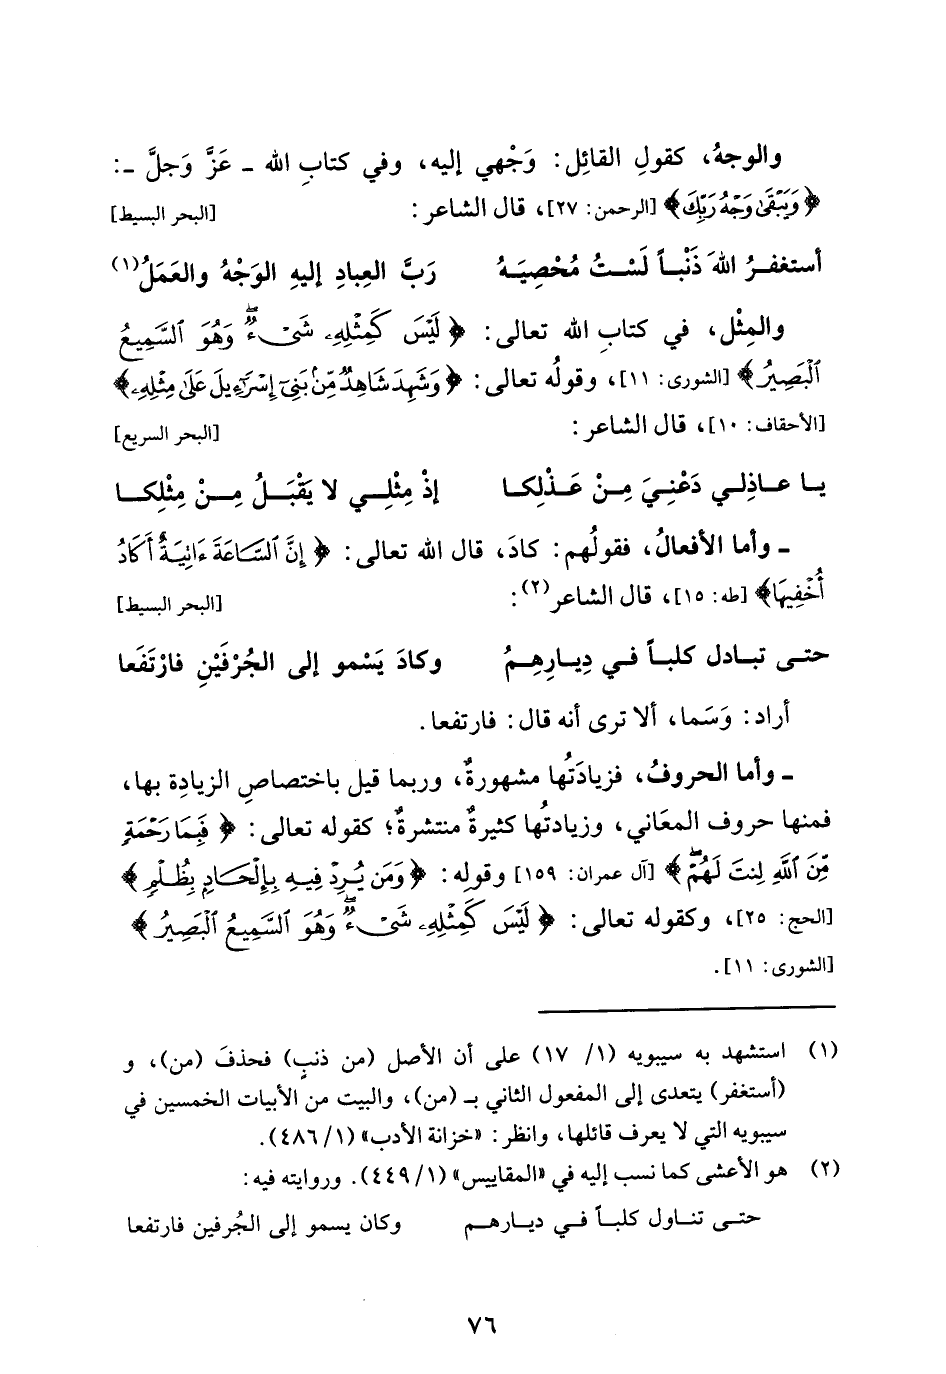 والوجهُ، كقولِ القائِل: وَجْهي إليه، وفي كتابِ الله ـ عَزَّ وَجلَّ ـ:
﴿وَيَبْقَىٰ وَجْهُ رَبِّكَ﴾ [الرحمن: ٢٧]، قال الشاعر: [البحر البسيط]
أستغفرُ اللهَ ذَنْباً لَسْتُ مُحْصِيَهُ رَبَّ العِبادِ إليهِ الوَجْهُ والعَمَلُ(١)
والمِثْل، في كتابِ الله تعالى: ﴿لَيْسَ كَمِثْلِهِۦ شَىْءٌ ۖ وَهُوَ ٱلسَّمِيعُ
ٱلْبَصِيرُ﴾ [الشورى: ١١]، وقولُه تعالى: ﴿وَشَهِدَ شَاهِدٌ مِّنۢ بَنِىٓ إِسْرَٰٓءِيلَ عَلَىٰ مِثْلِهِۦ﴾
[الأحقاف: ١٠]، قال الشاعر: [البحر السريع]
يا عاذِلي دَعْنِيَ مِنْ عَذْلِكا إذْ مِثْلِي لا يَقْبَلُ مِنْ مِثْلِكا
ـ وأما الأفعالُ، فقولُهم: كادَ، قال الله تعالى: ﴿إِنَّ ٱلسَّاعَةَ ءَاتِيَةٌ أَكَادُ
أُخْفِيهَا﴾ [طه: ١٥]، قال الشاعر(٢): [البحر البسيط]
حتى تبادل كلباً في دِيارِهِمُ وكادَ يَسْمو إلى الجُرْفَيْنِ فارْتَفَعا
أراد: وَسَما، ألا ترى أنه قال: فارتفعا.
ـ وأما الحروفُ، فزيادَتُها مشهورةٌ، وربما قيل باختصاصِ الزيادِة بها،
فمنها حروف المعَاني، وزيادتُها كثيرةٌ منتشرةٌ؛ كقوله تعالى: ﴿فَبِمَا رَحْمَةٍ
مِّنَ ٱللَّهِ لِنتَ لَهُمْ ۖ﴾ [آل عمران: ١٥٩] وقولِه: ﴿وَمَن يُرِدْ فِيهِ بِإِلْحَادٍۭ بِظُلْمٍ﴾
[الحج: ٢٥]، وكقوله تعالى: ﴿لَيْسَ كَمِثْلِهِۦ شَىْءٌ ۖ وَهُوَ ٱلسَّمِيعُ ٱلْبَصِيرُ﴾
[الشورى: ١١].
(١) استشهد به سيبويه (١/ ١٧) على أن الأصل (من ذنبٍ) فحذفَ (من)، و
(أستغفر) يتعدى إلى المفعول الثاني بـ (من)، والبيت من الأبيات الخمسين في
سيبويه التي لا يعرف قائلها، وانظر: «خزانة الأدب» (١/ ٤٨٦).
(٢) هو الأعشى كما نسب إليه في «المقاييس» (١/ ٤٤٩). وروايته فيه:
حتى تناول كلباً في ديارهم وكان يسمو إلى الجُرفين فارتفعا
٧٦